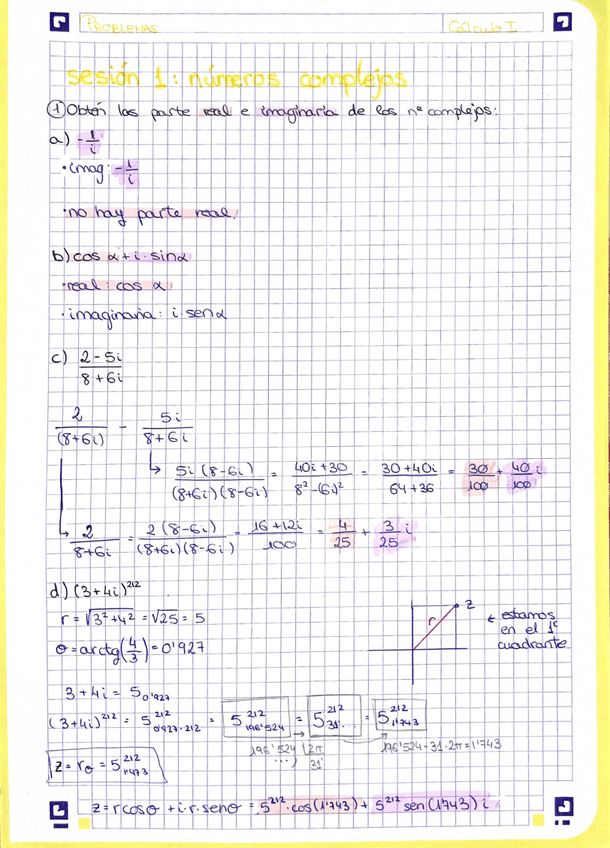 PROBLEMAS
Cálculo I
sesión 1: números complejos
① Obtén las parte real e imaginaria de los nº complejos:
a) -1/i
· imag: -1/i
· no hay parte real.
b) cos α + i · sin α
· real: cos α
· imaginaria: i sen α
c) (2 - 5i)/(8 + 6i)
2/(8+6i) - 5i/(8+6i)
↳ 5i(8-6i)/((8+6i)(8-6i)) = (40i+30)/(8² - (6i)²) = (30+40i)/(64+36) = 30/100 + 40/100 i
↳ 2/(8+6i) = 2(8-6i)/((8+6i)(8-6i)) = (16+12i)/100 = 4/25 + 3/25 i
d) (3+4i)²¹²
r = √(3²+4²) = √25 = 5
z
r
← estamos
en el 1º
cuadrante
θ = arctg(4/3) = 0'927
3 + 4i = 5_0'927
(3+4i)²¹² = 5²¹²_0'927·212 = 5²¹²_196'524 = 5²¹²_31'... = 5²¹²_1'743
196'524 |2π
...) 31'
196'524 - 31·2π = 1'743
z = r_θ = 5²¹²_1'473
z = r cos θ + i · r · sen θ = 5²¹² · cos(1'743) + 5²¹² sen(1'743) i